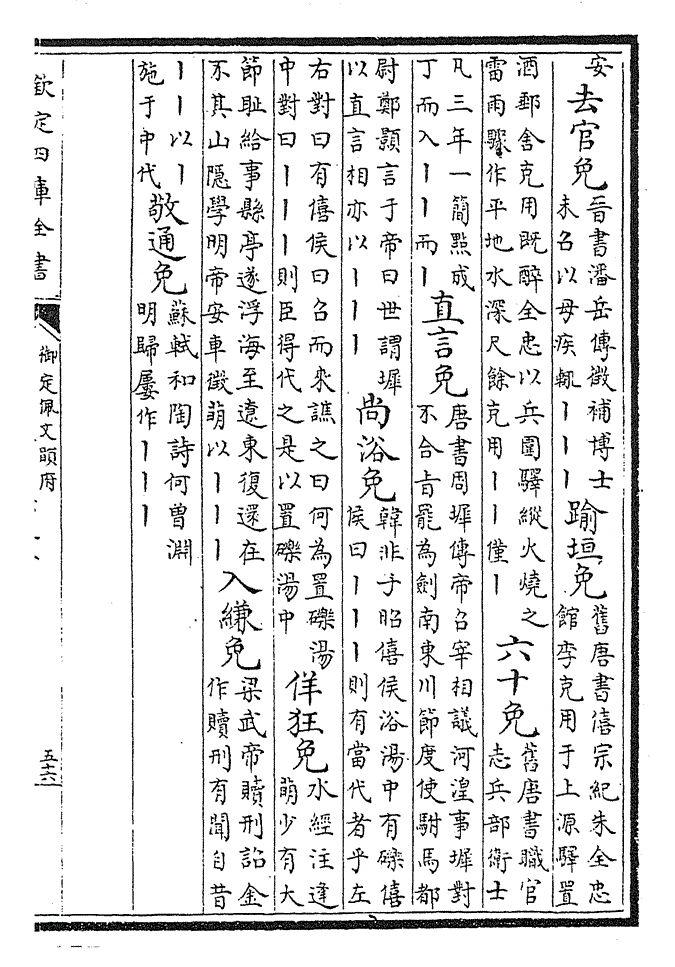 安
去官免
晉書潘岳傳徵補博士
未召以母疾輒丨丨丨
踰垣免
舊唐書僖宗紀朱全忠
館李克用于上源驛置
酒郵舍克用既醉全忠以兵圍驛縱火燒之
雷雨驟作平地水深尺餘克用丨丨僅丨
六十免
舊唐書職官
志兵部衛士
凡三年一簡點成
丁而入丨丨而丨
直言免
唐書周墀傳帝召宰相議河湟事墀對
不合旨罷為劍南東川節度使駙馬都
尉鄭顥言于帝曰世謂墀
以直言相亦以丨丨丨
尚浴免
韓非子昭僖侯浴湯中有礫僖
侯曰丨丨丨則有當代者乎左
右對曰有僖侯曰召而來譙之曰何為置礫湯
中對曰丨丨丨則臣得代之是以置礫湯中
佯狂免
水經注逢
萌少有大
節耻給事縣亭遂浮海至遼東復還在
不其山隱學明帝安車徵萌以丨丨丨
入縑免
梁武帝贖刑詔金
作贖刑有聞自昔
丨丨以丨
施于中代
敬通免
蘇軾和陶詩何曹淵
明歸屢作丨丨丨
欽定四庫全書
御定佩文韻府
五十六